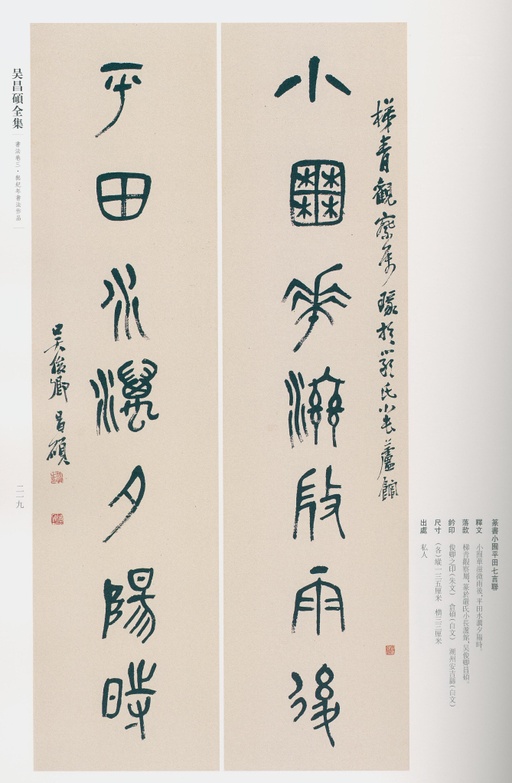 梯青觀察屬篆於嚴氏小長蘆館
小囿華滋微雨後
平田水濕夕陽時
吳俊卿昌碩
篆書小囿平田七言聯
釋文 小囿華滋微雨後,平田水濕夕陽時。
落款 梯青觀察屬,篆於嚴氏小長蘆館。吳俊卿昌碩。
鈐印 俊卿之印(朱文) 倉碩(白文) 湖州安吉縣(白文)
尺寸 (各)縱一三五厘米 橫三三厘米
出處 私人
吴昌碩全集
書法卷三·無紀年書法作品
二一九